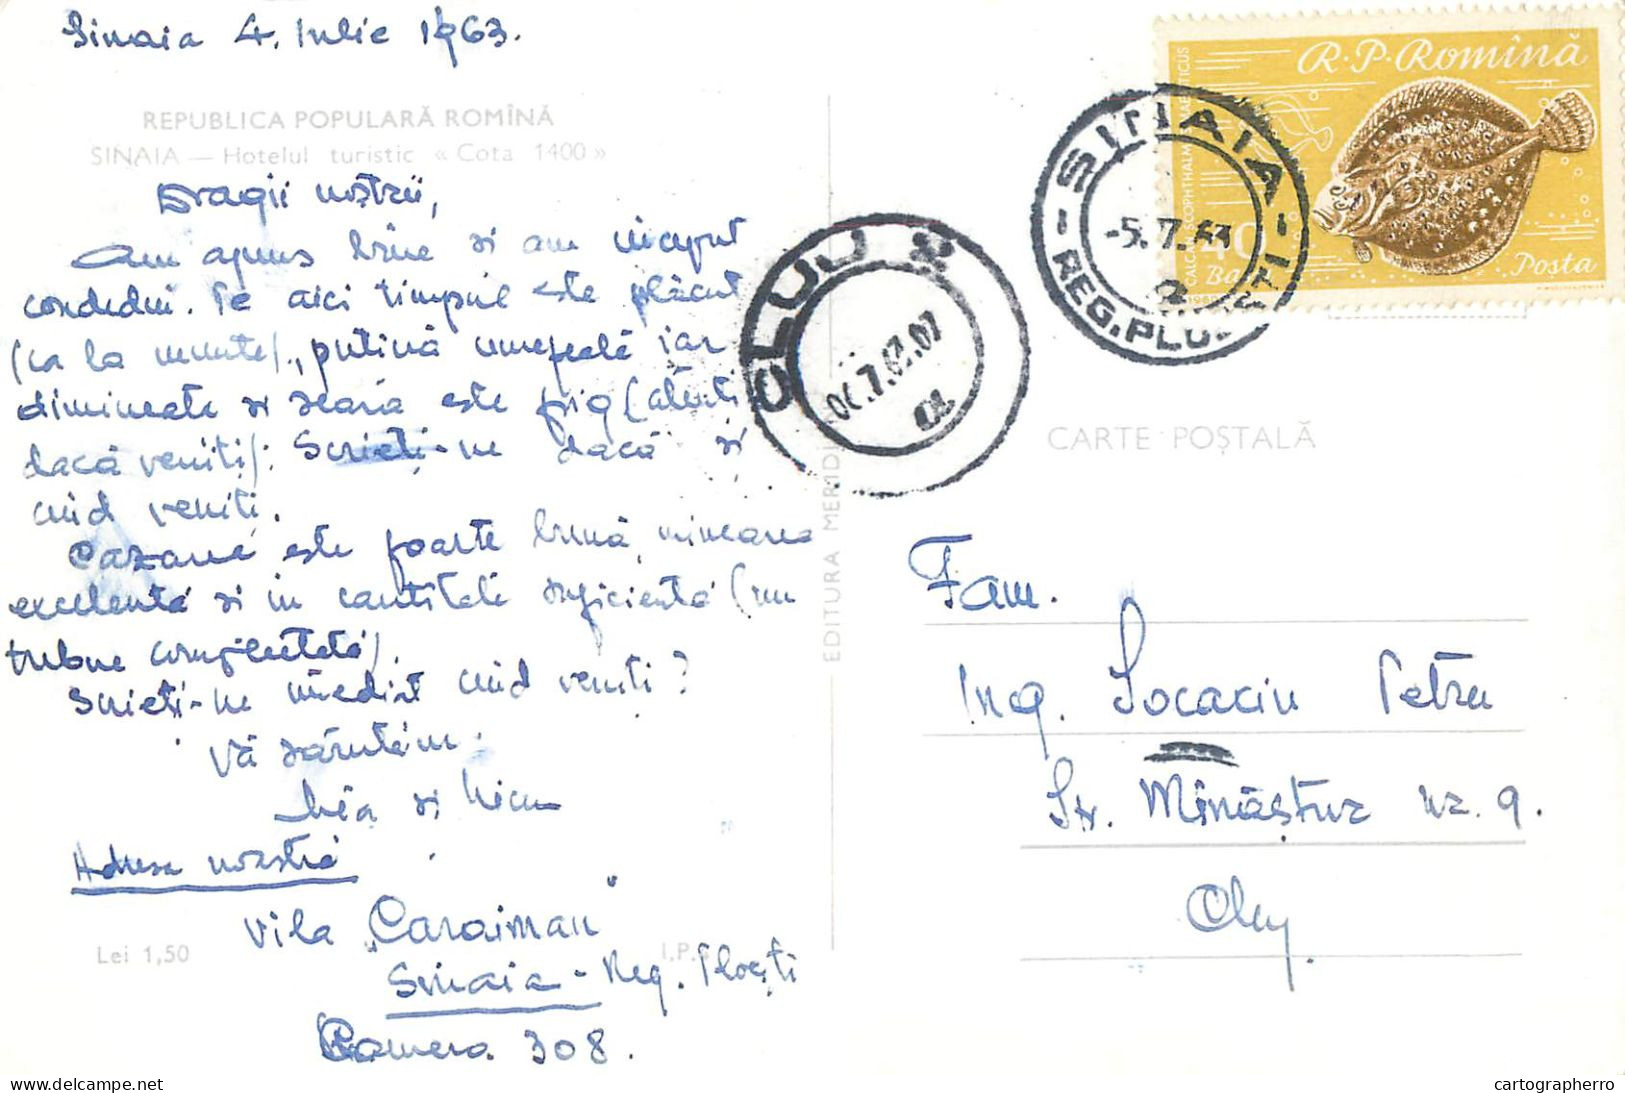 Sinaia 4. Iulie 1963.
REPUBLICA POPULARĂ ROMÎNĂ
SINAIA — Hotelul turistic « Cota 1400 »
Dragii noștrii,
Am ajuns bine si am început
condediu. Pe aici timpul este plăcut
(ca la munte), puțină umezeală iar
dimineata si seara este frig (atenti
dacă veniti). Scrieți-ne dacă si
cînd veniti.
Cazarea este foarte bună, mincarea
excelentă si în cantitate suficientă (nu
trebue completată).
Scrieti-ne imediat cînd veniti?
Vă sărutăm.
si Nicu
Adresa noastră
Vila „Caraiman"
Sinaia - Reg. Ploești
Camera 308.
Lei 1,50
I.P.
EDITURA MERIDI
CLUJ 2
SINAIA
REG. PLOEȘTI
-5.7.63
R.P. Romînă
40
Bani
Posta
1960
CARTE POȘTALĂ
Fam.
Ing. Socaciu Petru
Str. Mînăștur nr. 9.
Cluj.
cartographerro